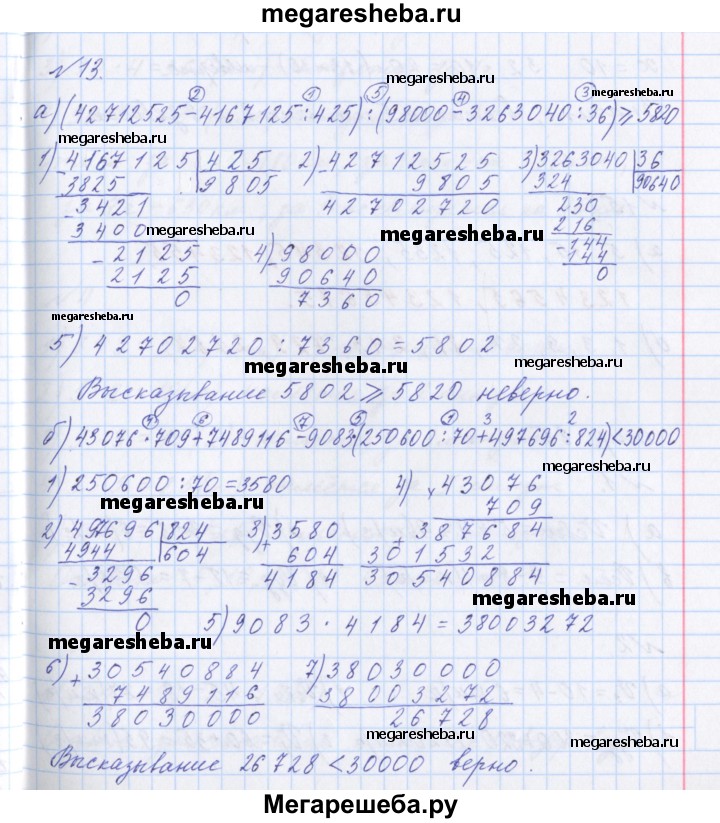 megaresheba.ru
№13.
megaresheba.ru
а) (42712525 - 4167125 : 425) : (98000 - 3263040 : 36) ⩾ 5820
2 1 5 4 3
megaresheba.ru
1) 4167125 | 425 2) - 42712525 3) 3263040 | 36
3825 9805 9805 324 90640
- 3421 42702720 230
3400 megaresheba.ru megaresheba.ru 216
- 2125 4) - 98000 - 144
2125 90640 144
0 7360 0
megaresheba.ru
5) 42702720 : 7360 = 5802
megaresheba.ru megaresheba.ru
Высказывание 5802 ⩾ 5820 неверно.
4 6 7 5 1 3 2
б) 43076 · 709 + 7489116 - 9083 · (250600 : 70 + 497696 : 824) < 30000
megaresheba.ru
1) 250600 : 70 = 3580 4) × 43076
megaresheba.ru 709
2) 497696 | 824 3) + 3580 + 387684
4944 604 604 301532
- 3296 4184 30540884
3296 megaresheba.ru
0 5) 9083 · 4184 = 38003272
megaresheba.ru
6) + 30540884 7) 38030000
7489116 38003272
38030000 26728
megaresheba.ru
megaresheba.ru
Высказывание 26728 < 30000 верно.
Мегарешеба.ру